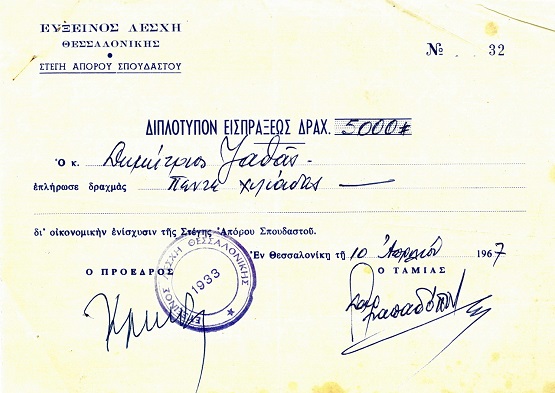 ΕΥΞΕΙΝΟΣ ΛΕΣΧΗ
ΘΕΣΣΑΛΟΝΙΚΗΣ
ΣΤΕΓΗ ΑΠΟΡΟΥ ΣΠΟΥΔΑΣΤΟΥ
№ 32
ΔΙΠΛΟΤΥΠΟΝ ΕΙΣΠΡΑΞΕΩΣ ΔΡΑΧ. 5000#
Ὁ κ. Δημήτριος Ψαθᾶς
ἐπλήρωσε δραχμὰς Πέντε χιλιάδες
δι' οἰκονομικὴν ἐνίσχυσιν τῆς Στέγης Ἀπόρου Σπουδαστοῦ.
Ἐν Θεσσαλονίκῃ τῇ 10 Ἀπριλίου 1967
Ο ΠΡΟΕΔΡΟΣ
Ο ΤΑΜΙΑΣ
ΕΥΞΕΙΝΟΣ ΛΕΣΧΗ ΘΕΣΣΑΛΟΝΙΚΗΣ
1933